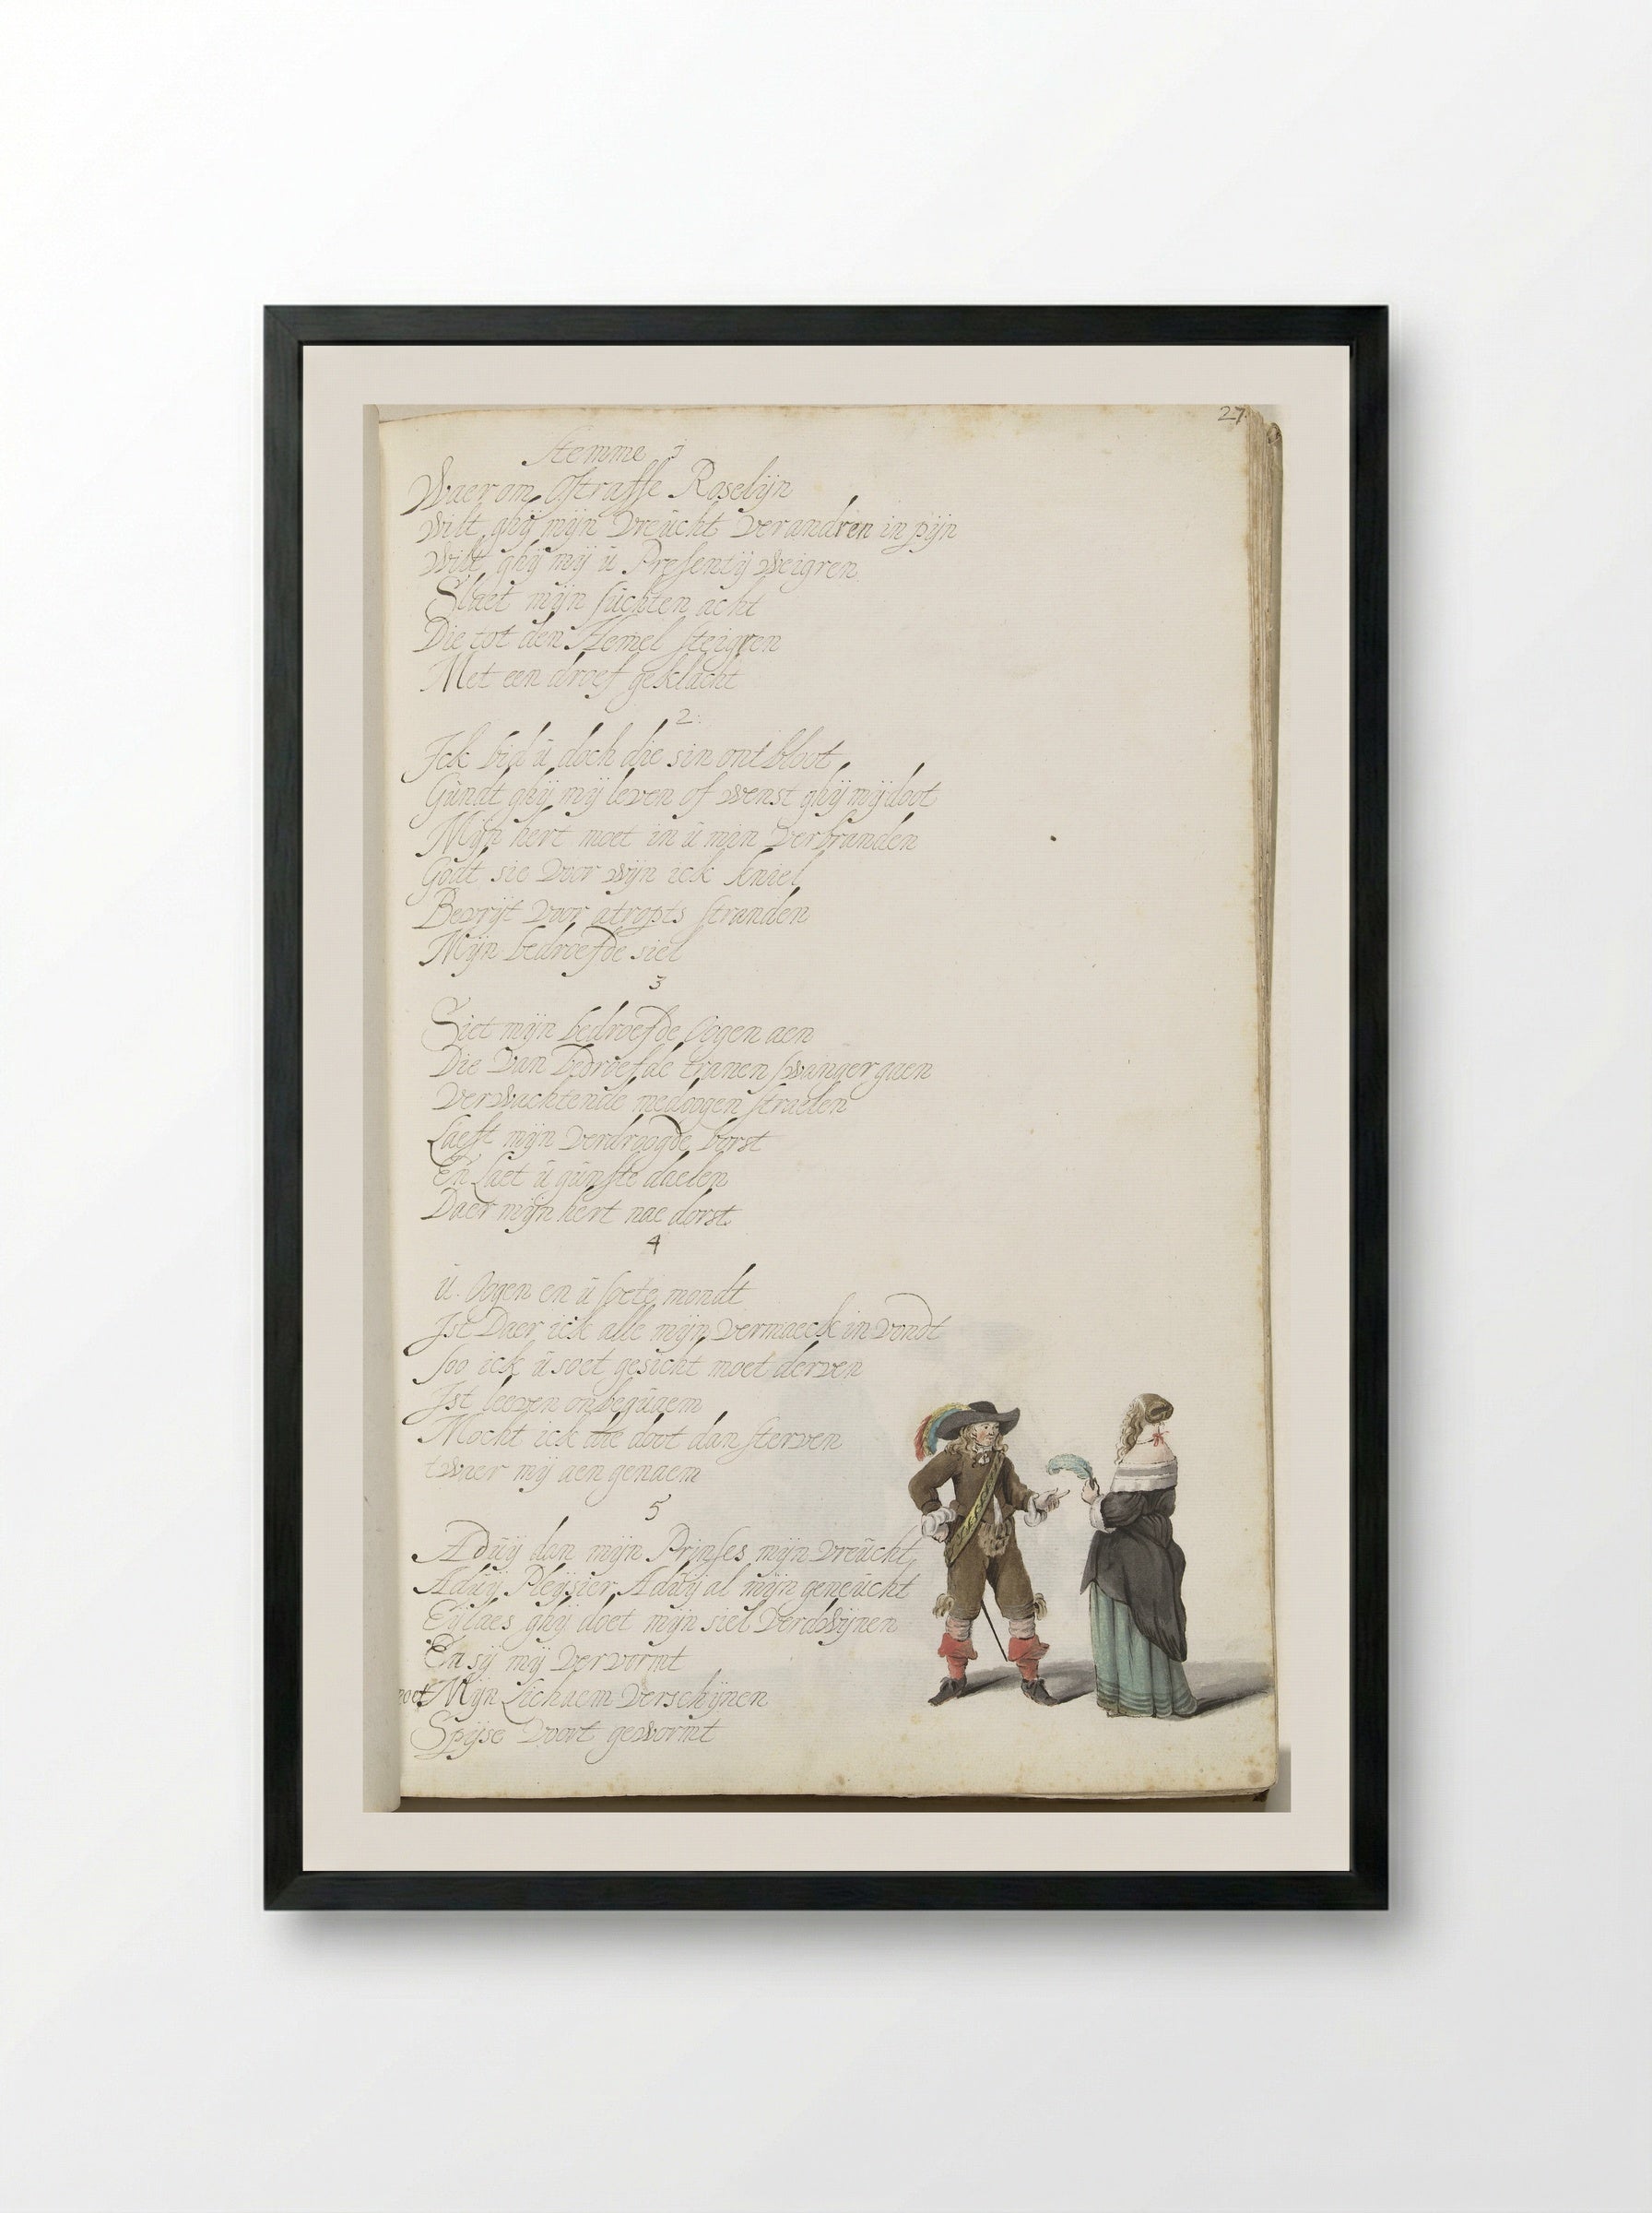 27
Stemme 1
Waerom Ostraffe Roselijn
Wilt ghij mijn vreucht verandren in pijn
Wilt ghij mij ü Presentij weigren
Slaet mijn süchten acht
Die tot den Hemel steigren
Met een droef geklacht
2:
Ick bid ü doch die sin ontbloot
Gündt ghij mij leven of wenst ghij mij doot
Mijn hert moet in ü min verbranden
Godt sie voor wijn ick kniel
Bevrijt voor atropts stranden
Mijn bedroefde siel
3
Siet mijn bedroefde Oogen aen
Die van bedroefde tranen swanger gaen
Verwachtende medoogen straelen
Laeft mijn verdroogde borst
En Laet ü günste daelen
Daer mijn hert nae dorst
4
ü Oogen en ü soete mondt
Ist Daer ick alle mijn vermaeck in vondt
soo ick ü soet gesicht moet derven
Ist leeven onbequaem
Mocht ick die doot dan sterven
twaer mij aengenaem
5
Adüij dan mijn Prinses mijn vreücht
Adüij Pleijsier Adüij al mijn geneücht
Eijlaes ghij doet mijn siel verdwijnen
En sij mij vervormt
moet Mijn Lichaem verschijnen
Spijse voort gewormt